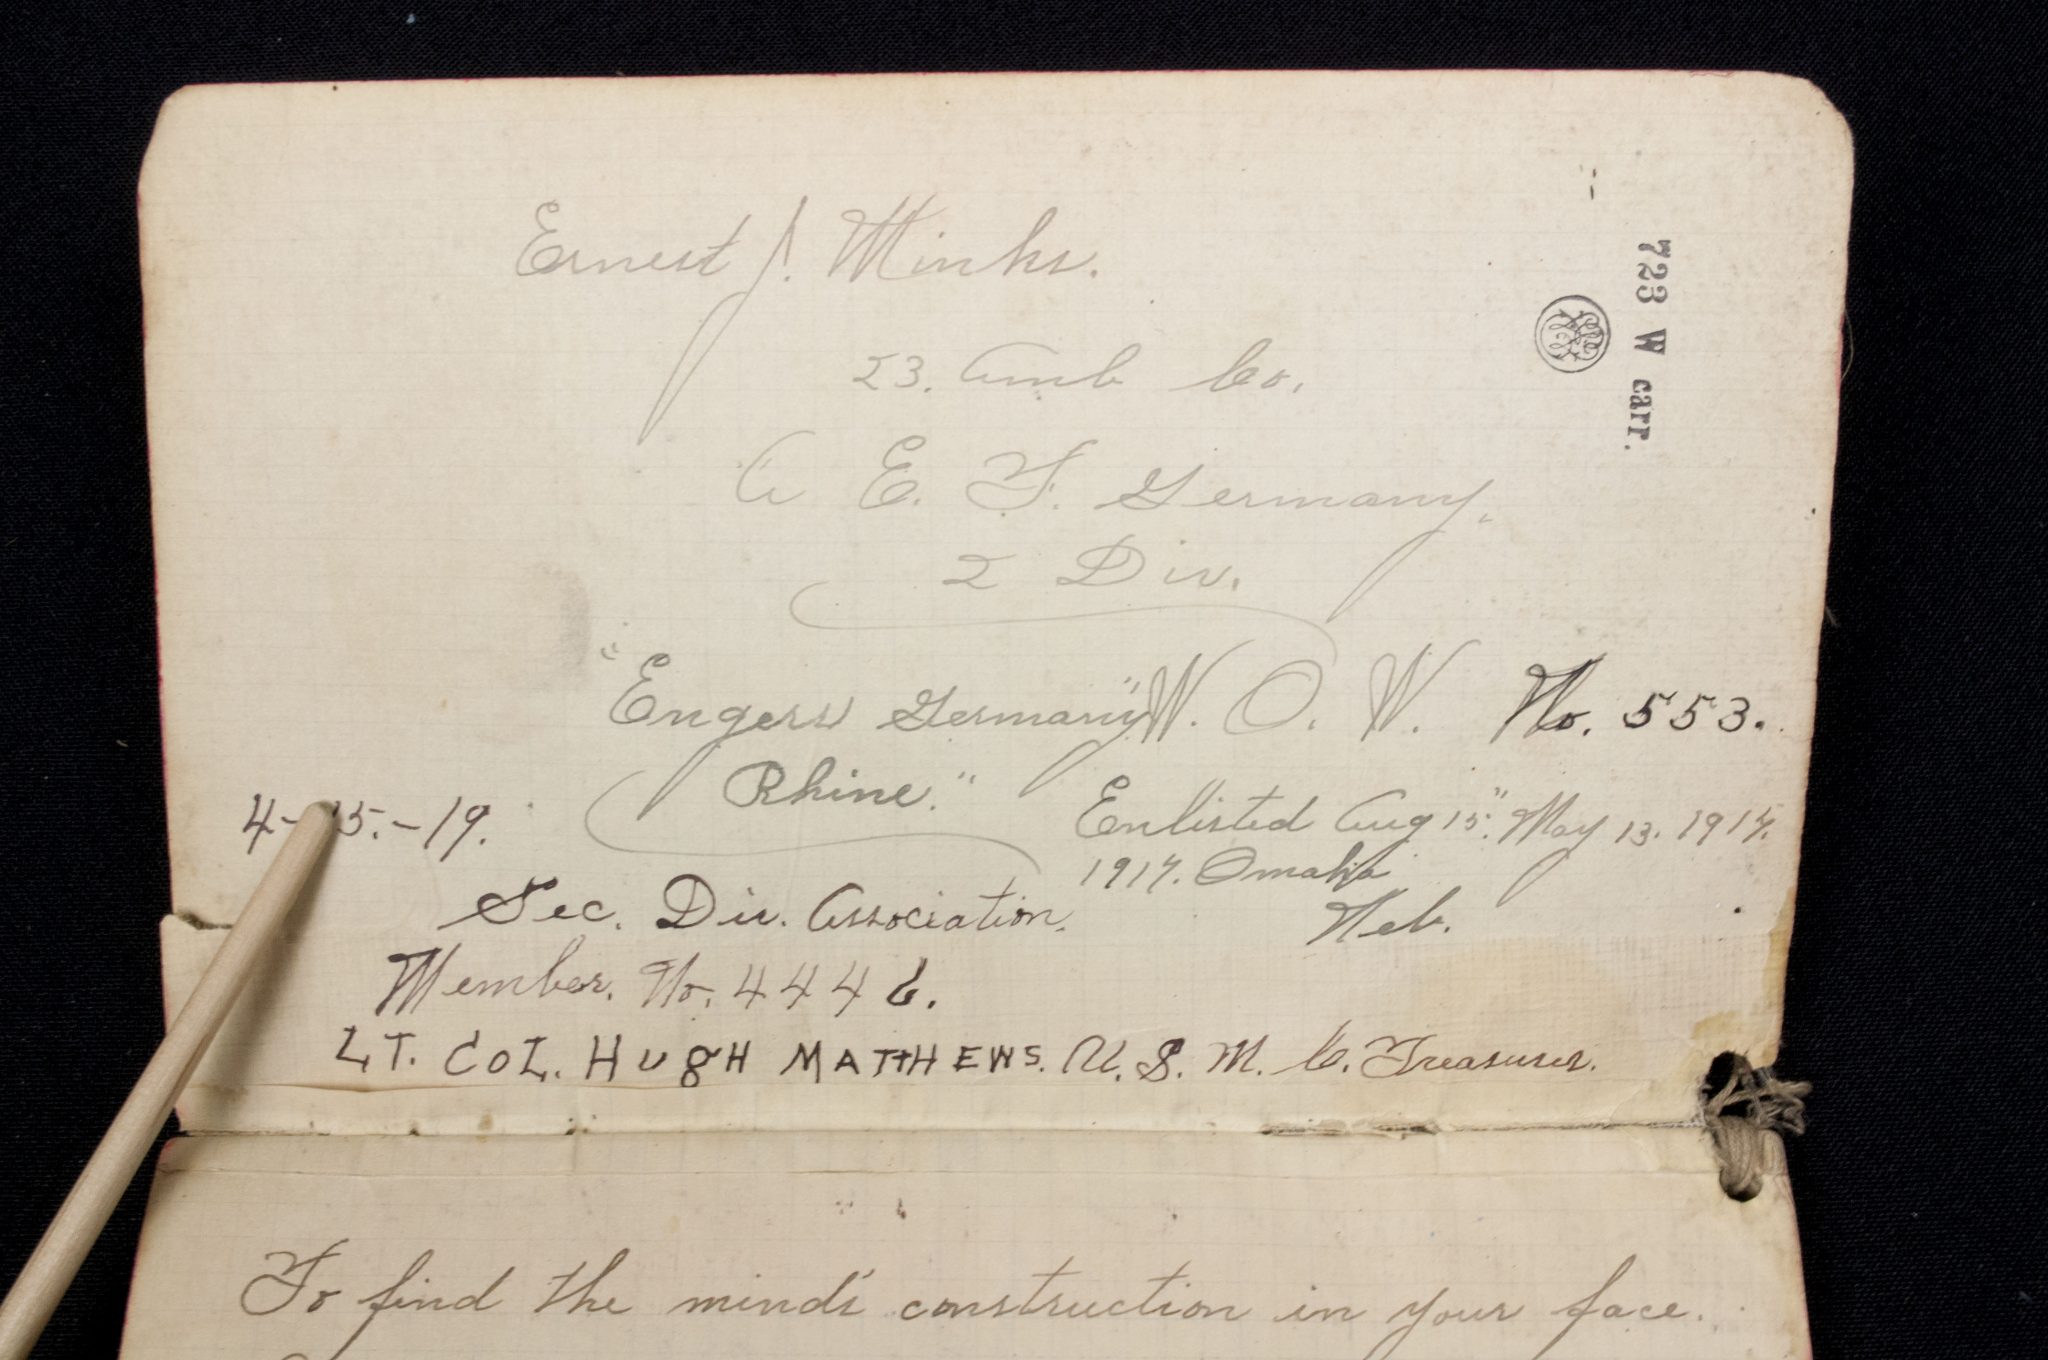 Ernest J. Minks.
723 W carr.
23. Amb Co.
A E. F. Germany.
2 Div.
"Engers Germany" W. O. W. No. 553.
Rhine."
4- 15.-19.
Enlisted Aug 15". May 13. 1917.
1917. Omaha
Neb.
Sec. Div. Association.
Member. No. 4446.
LT. COL. HUGH MATTHEWS. U. S. M. C. Treasurer.
To find the mind's construction in your face.